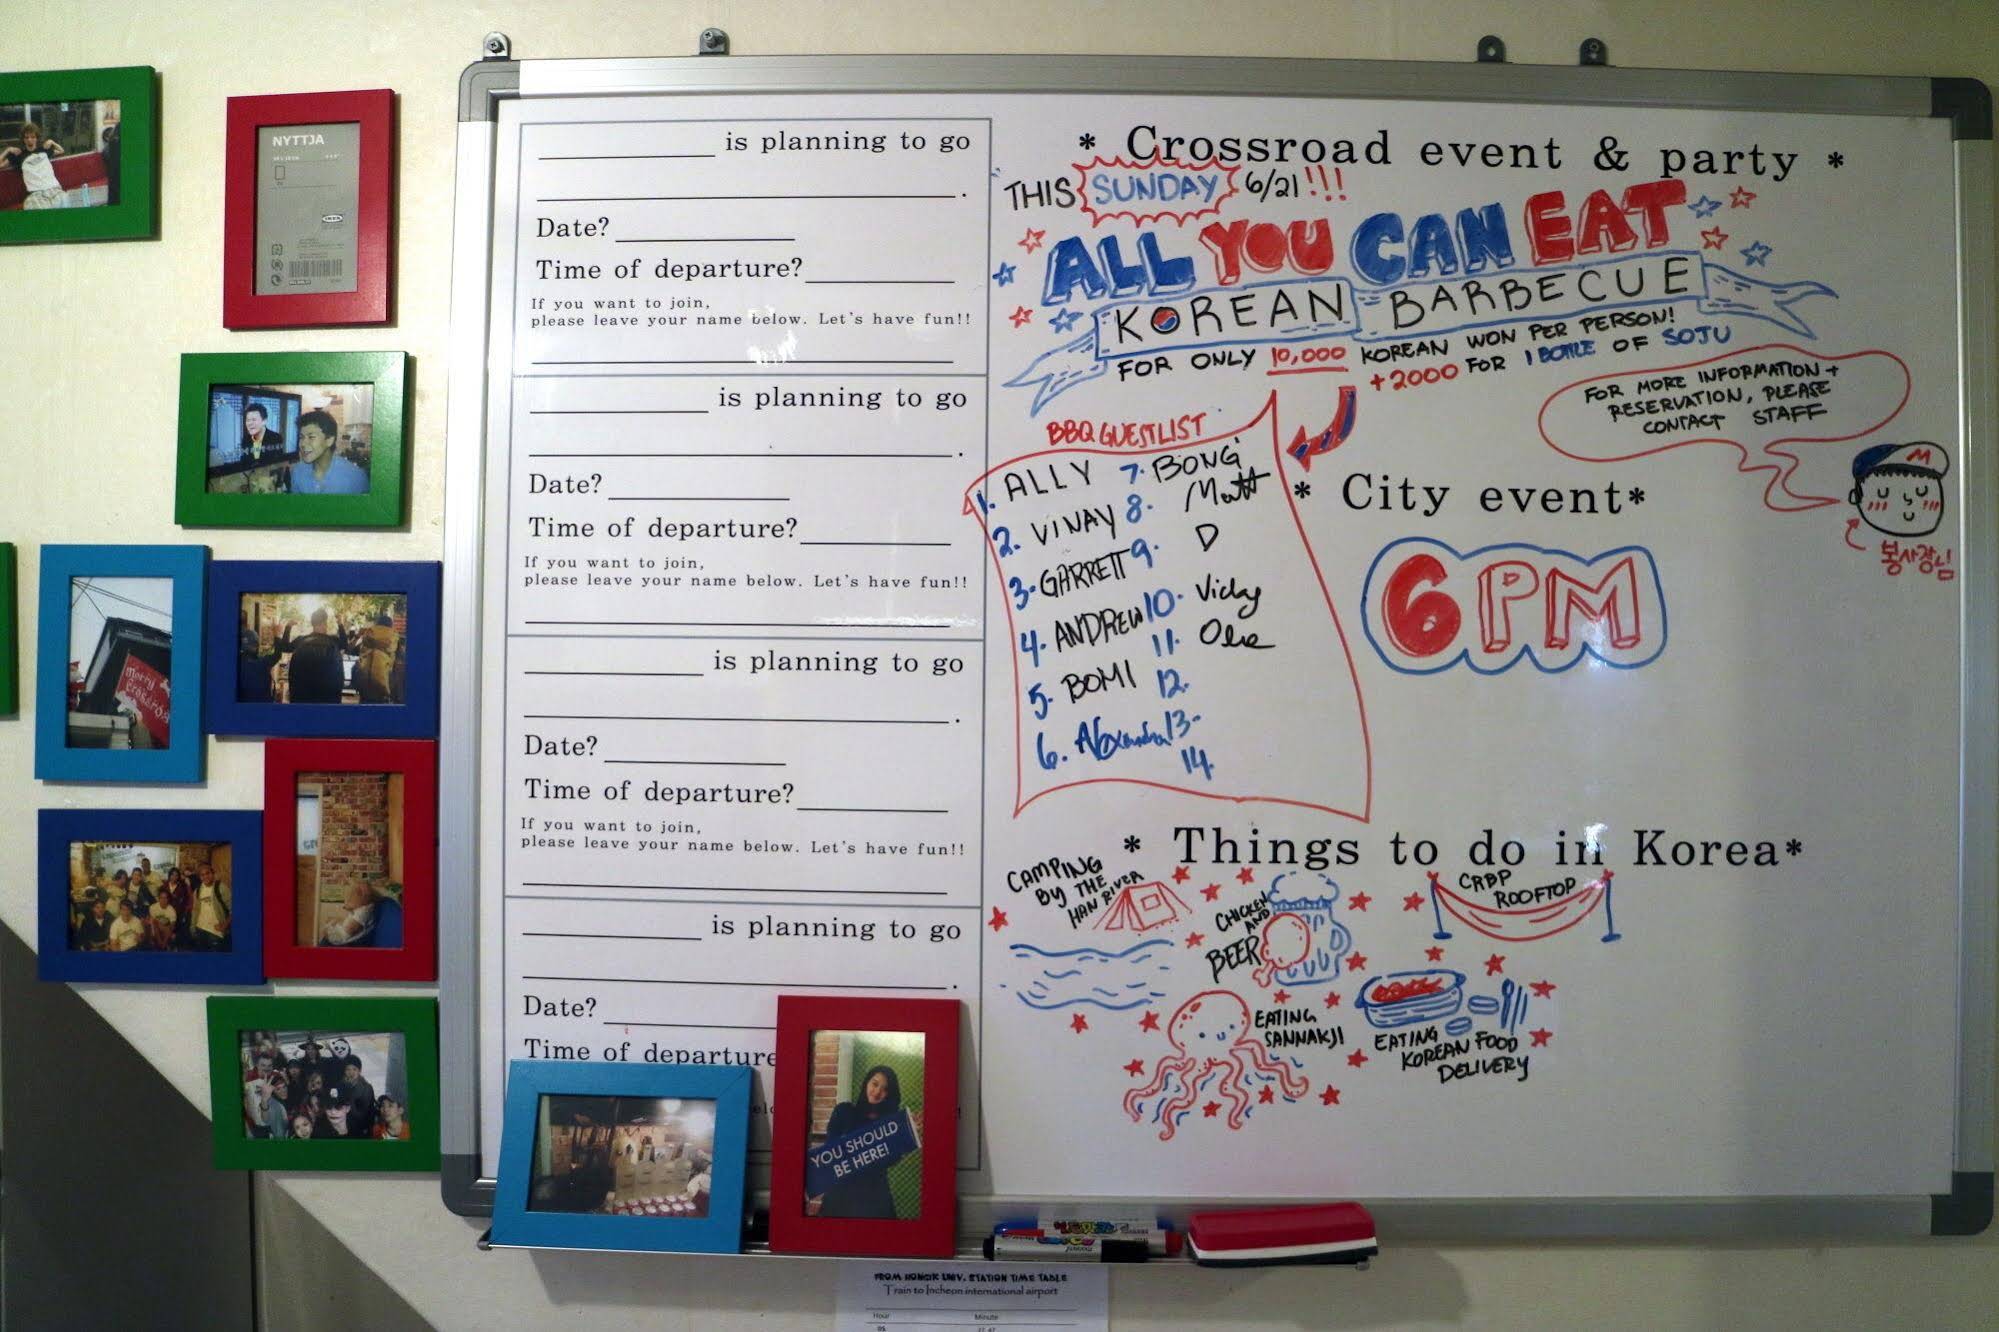 NYTTJA
IKEA
Merry
___ is planning to go
___.
Date? ___
Time of departure? ___
If you want to join,
please leave your name below. Let's have fun!!
___ is planning to go
___.
Date? ___
Time of departure? ___
If you want to join,
please leave your name below. Let's have fun!!
___ is planning to go
___.
Date? ___
Time of departure? ___
If you want to join,
please leave your name below. Let's have fun!!
___ is planning to go
___.
Date? ___
Time of departure
YOU SHOULD
BE HERE!
* Crossroad event & party *
THIS SUNDAY 6/21!!!
ALL YOU CAN EAT
KOREAN BARBECUE
FOR ONLY 10,000 KOREAN WON PER PERSON!
+2000 FOR 1 BOTTLE OF SOJU
FOR MORE INFORMATION +
RESERVATION, PLEASE
CONTACT STAFF
M
봉사장님
BBQ GUESTLIST
1. ALLY
2. VINAY
3. GARRETT
4. ANDREW
5. BOMI
6. Alexandra
7. BONG
8. Matt
9. D
10. Vicky
11.
12.
13.
14.
* City event*
6PM
* Things to do in Korea*
CAMPING
BY THE
HAN RIVER
CHICKEN
AND
BEER
CRBP
ROOFTOP
EATING
SANNAKJI
EATING
KOREAN FOOD
DELIVERY
FROM HONGIK UNIV. STATION TIME TABLE
Train to Incheon international airport
Hour Minute